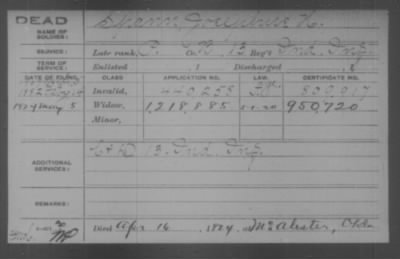 DEAD
NAME OF SOLDIER: Spann, Josephus N.
SERVICE: Late rank, Co. 13 Reg't Ind. Inf.
TERM OF SERVICE: Enlisted , 1 Discharged , 1
DATE OF FILING. CLASS. APPLICATION NO. LAW. CERTIFICATE NO.
Invalid, 440,258
1924 May 5 Widow, 1,218,885 950,720
Minor,
ADDITIONAL SERVICES: 13. Ind. Inf.
REMARKS:
Died Apr 16, 1924, at McAlester, Okla